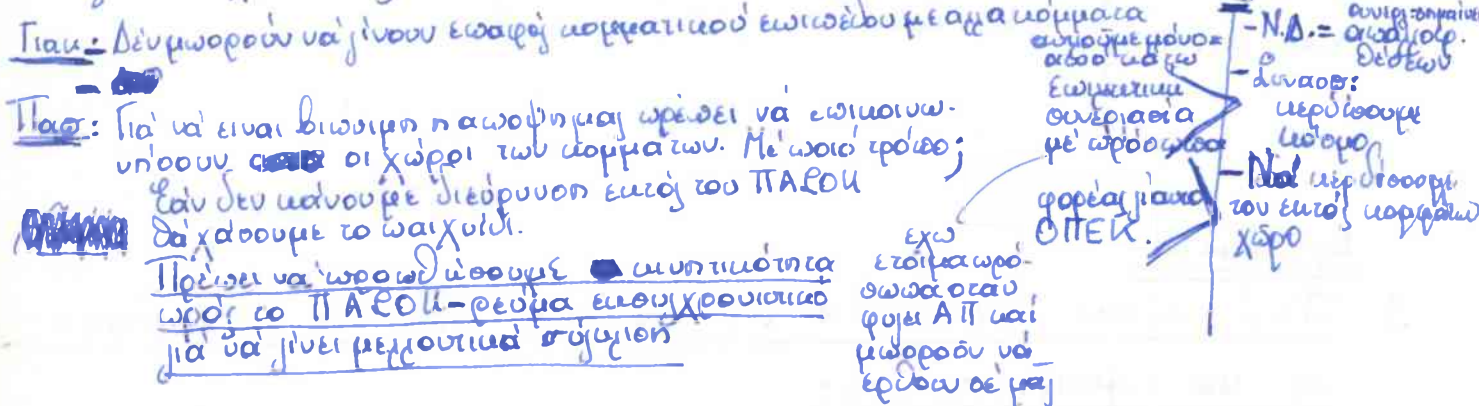 Γιακ: Δέν μπορούν νά γίνουν επαφές κομματικού επιπέδου με άλλα κόμματα
Πασ: Γιά νά είναι βιώσιμη η άποψη μας πρέπει νά επικοινω-
νήσουν οι χώροι των κομμάτων. Μέ ποιό τρόπο;
Εάν δεν κάνουμε διεύρυνση εκτός του ΠΑΣΟΚ
θά χάσουμε το παιχνίδι.
Πρέπει νά προωθήσουμε κινητικότητα
πρός το ΠΑΣΟΚ-ρεύμα εκσυγχρονιστικό
γιά νά γίνει μελλοντικά σύγκλιση
συνεργασία
μέ πρόσωπα
φορέας γιαυτό
ΟΠΕΚ.
έχω
έτοιμα πρό-
σωπα όταν
φύγει ΑΠ καί
μπορούν νά
έρθουν σέ μας
- Ν.Δ. =
θέσεων
- Συνασπ:
κερδίσουμε
κόσμο
- Νά κερδίσουμε
τον εκτός κομμάτων
χώρο